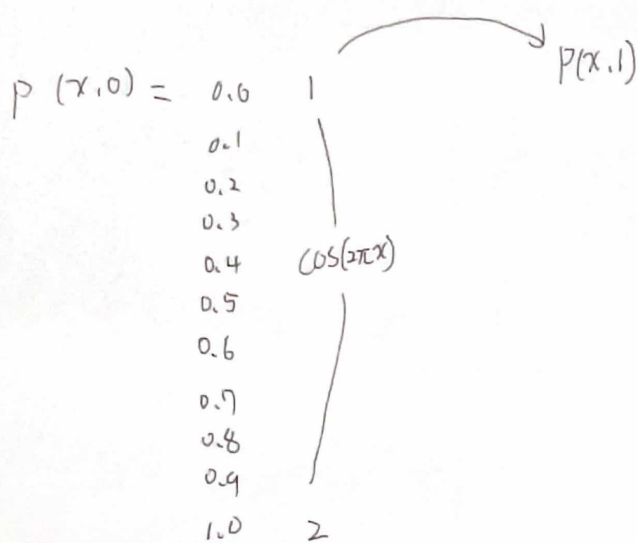 P(x,0) = 0.0 1 P(x,1)
0.1
0.2
0.3
0.4 cos(2πx)
0.5
0.6
0.7
0.8
0.9
1.0 2